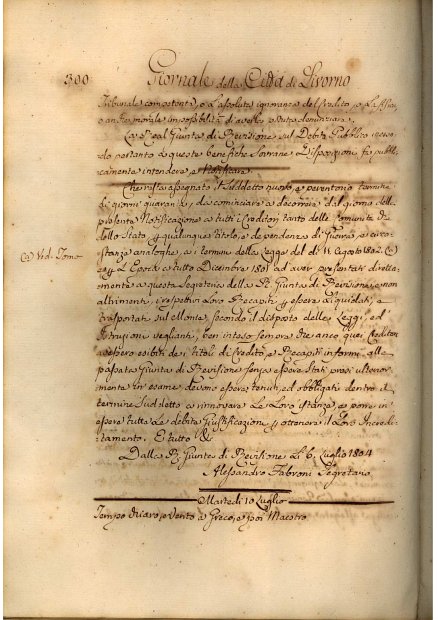 300 Giornale della Città di Livorno
Tribunale competente, o L'assoluta ignoranza del Credito, o La fisica,
o anche morale impossibilità di averlo potuto denunziare.
La R Real Giunta di Revisione sul Debito Pubblico
do pertanto a queste benefiche Sovrane Disposizioni fa pubbli-
camente intendere e Notificare
Che resta assegnato il suddetto nuovo, e perentorio termine
di giorni quaranta, da cominciare a decorrere dal giorno della
presente Notificazione a tutti i Creditori tanto delle Comunità che
dello Stato, per qualunque titolo, e dependenza di Guerra, o circo-
stanze analoghe, a i termini della Legge del dì 11 Agosto 1802. (a)
(a) Vid. Tomo
e per L'Epoca a tutto Dicembre 1801 ad aver presentati diretta-
mente a questa Segreteria della R. Giunta di Revisione, e non
altrimenti, i respettivi Loro Recapiti per essere Liquidati, e
trasportati sul Monte, secondo il disposto delle Leggi, ed
Istruzioni veglianti, ben inteso sempre che anco quei Creditori
avessero esibiti dei titoli di Credito, e Recapiti informi alla
passata Giunta di Revisione senza essere stati presi ulterior-
mente in esame devono essere tenuti, ed obbligati dentro il
termine suddetto a rinnovare Le Loro istanze, e porre in
essere tutte Le debite Giustificazioni per ottenere il Loro Incredi-
tamento. E tutto &c
Dalla R. Giunta di Revisione Li 6. Luglio 1804
Alessandro Fabroni Segretario
Martedì 10 Luglio
Tempo chiaro, e Vento a Greco, e poi Maestro